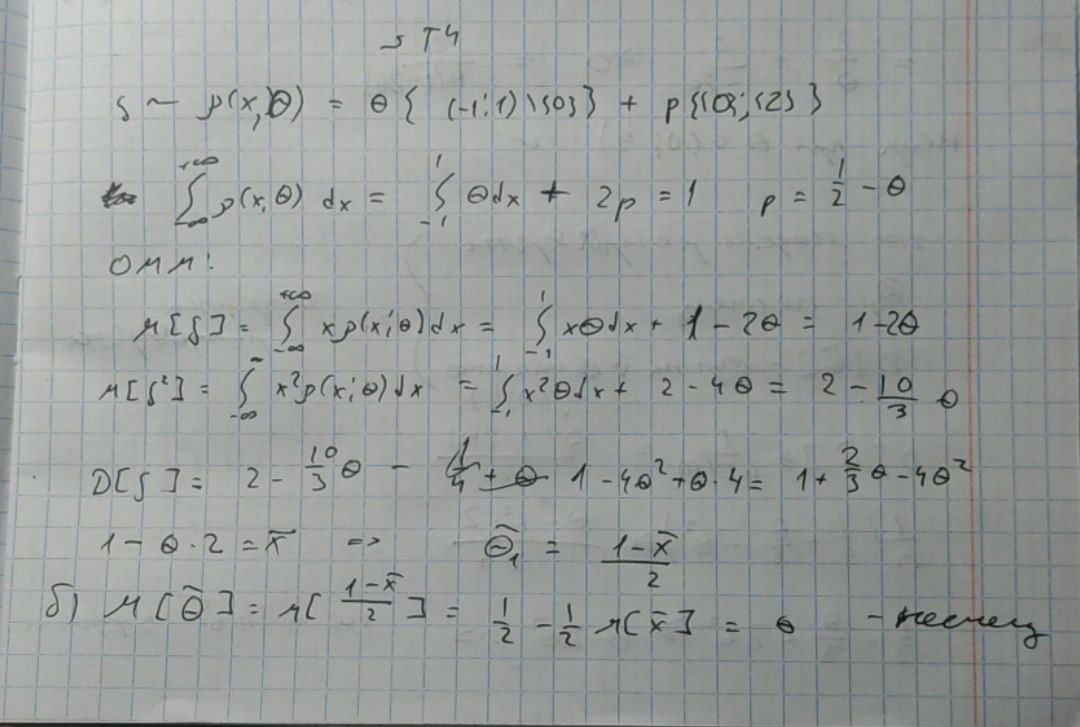 T4
ξ ~ p(x,θ) = θ{ (-1;1)\{0} } + p{{0};{2}}
∫_{-∞}^{+∞} p(x,θ) dx = ∫_{-1}^{1} θdx + 2p = 1 p = 1/2 - θ
ОММ:
M[ξ] = ∫_{-∞}^{+∞} xp(x;θ)dx = ∫_{-1}^{1} xθdx + 1 - 2θ = 1-2θ
M[ξ²] = ∫_{-∞}^{∞} x²p(x;θ)dx = ∫_{-1}^{1} x²θdx + 2 - 4θ = 2 - 10/3 θ
D[ξ] = 2 - 10/3 θ - 1 - 4θ² + θ·4 = 1 + 2/3 θ - 4θ²
1 - θ·2 = x̄ => θ̃₁ = (1-x̄)/2
б) M[θ̃] = M[(1-x̄)/2] = 1/2 - 1/2 M[x̄] = θ - несмещ